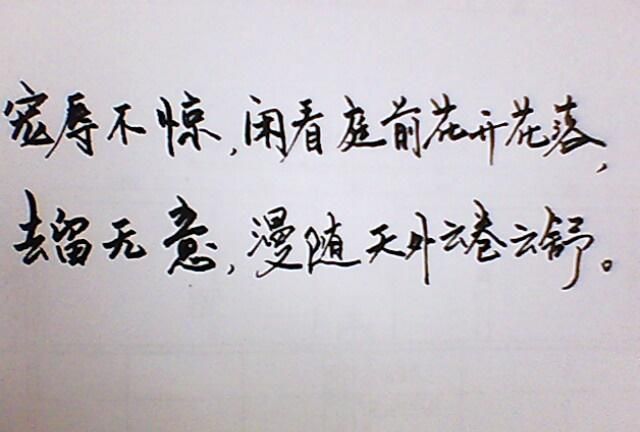 宠辱不惊,闲看庭前花开花落,
去留无意,漫随天外云卷云舒。